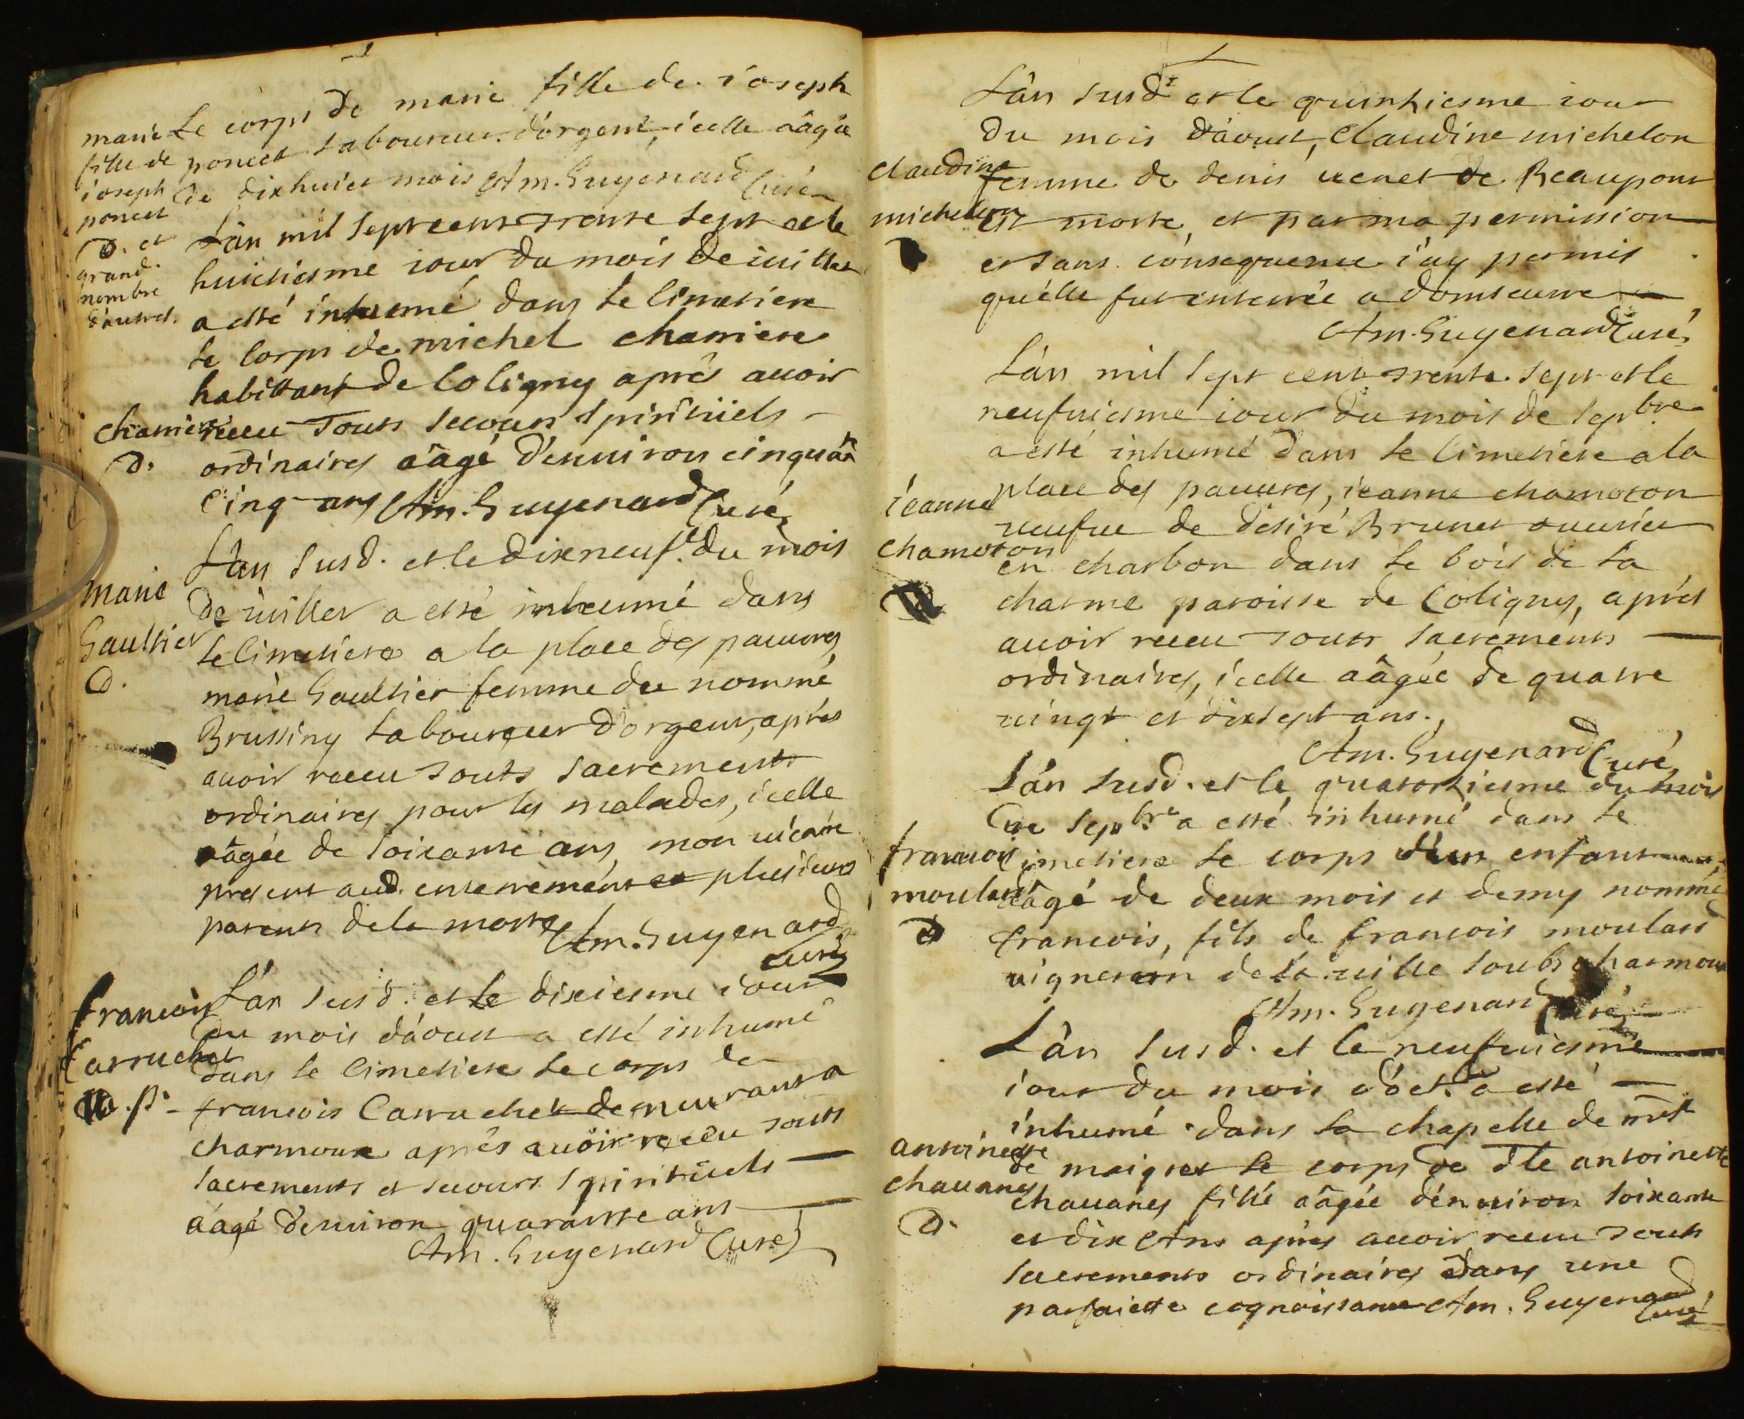 marie
fille de
ioseph
poncet
D. et
grand
nombre
d'autres.
Le corps de marie fille de ioseph
poncet laboureur d'orgent, icelle aâgée
de dixhuict mois Am. Guyenard Curé
L'an mil sept cent trente sept et le
huictiesme iour du mois de iuillet
a esté inhumé dans le Cimetiere
le Corps de michel charriere
habittant de Coligny aprés auoir
charriere
D.
receu touts secours spirituels
ordinaires aâgé d'enuiron cinquāte
Cinq ans Am. Guyenard Curé
L'an susd. et le dixneufe. du mois
marie
Gaultier
D.
De iuillet a esté inhumé dans
le Cimetiere a la place des pauures
marie Gaultier femme du nommé
Brussiny laboureur d'orgeur, apres
auoir receu touts sacrements
ordinaires pour les malades, icelle
aâgée de soixante ans, mon uicaire
present aud. enterrement et plusieurs
parents de la morte Am. Guyenard
curé
francois
Carruchet
D. p.
L'an susd. et le dixiesme iour
du mois d'aoust a esté inhumé
dans le Cimetiere le corps de
francois Carruchet demeurant a
charmoux aprés auoir receu touts
sacrements et secours spirituels
aâgé d'enuiron quarante ans
Am. Guyenard Curé
L'an susdt et le quinziesme iour
du mois d'aoust, Claudine michelon
Claudine
michelon
femme de denis uenet de Beaupont
est morte, et par ma permission
et sans consequence i'ay permis
qu'elle fut enterrée a domseurre
Am. Guyenard Curé
L'an mil sept cent trente sept et le
neufuiesme iour du mois de sepbre
a esté inhumé dans le Cimetiere a la
ieanne
chamoton
place des pauures, ieanne chamoton
ueufue de desiré Brunet ouurier
en charbon dans le bois de la
charme paroisse de Coligny, aprés
auoir receu touts sacrements
ordinaires, icelle aâgée de quatre
uingt et dixsept ans.
Am. Guyenard Curé
L'an susd. et le quatorziesme du mois
De sepbre a esté inhumé dans le
francois
moulard
D
Cimetiere le corps d'un enfant
aâgé de deux mois et demy nommé
francois, fils de francois moulard
uigneron de la uille soubs charmoux
Am. Guyenard Curé
L'an susd. et le neufuiesme
iour du mois d'oct. a esté
inhumé dans la chapelle de mr
antoinette
chauany
D.
de maigret le corps de dlle antoinette
chauany fille aâgée d'enuiron soixante
et dix Ans aprés auoir receu touts
sacrements ordinaires dans une
parfaicte cognoissance Am. Guyenard
Curé